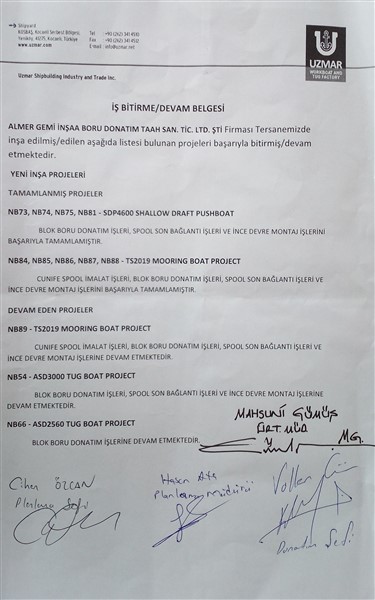 Shipyard
KOSBAŞ, Kocaeli Serbest Bölgesi
Yeniköy, 41275, Kocaeli, Türkiye
www.uzmar.com
Tel : +90 (262) 341 4510
Fax
E.mail : info@uzmar.net
UZMAR
WORKBOAT AND
TUG FACTORY
Uzmar Shipbuilding Industry and Trade Inc.
İŞ BİTİRME/DEVAM BELGESİ
ALMER GEMİ İNŞAA BORU DONATIM TAAH SAN. TİC. LTD. ŞTİ Firması Tersanemizde
inşa edilmiş/edilen aşağıda listesi bulunan projeleri başarıyla bitirmiş/devam
etmektedir.
YENİ İNŞA PROJELERİ
TAMAMLANMIŞ PROJELER
NB73, NB74, NB75, NB81 - SDP4600 SHALLOW DRAFT PUSHBOAT
BLOK BORU DONATIM İŞLERİ, SPOOL SON BAĞLANTI İŞLERİ VE İNCE DEVRE MONTAJ İŞLERİNİ
BAŞARIYLA TAMAMLAMIŞTIR.
NB84, NB85, NB86, NB87, NB88 - TS2019 MOORING BOAT PROJECT
CUNIFE SPOOL İMALAT İŞLERİ, BLOK BORU DONATIM İŞLERİ, SPOOL SON BAĞLANTI İŞLERİ VE
İNCE DEVRE MONTAJ İŞLERİNİ BAŞARIYLA TAMAMLAMIŞTIR.
DEVAM EDEN PROJELER
NB89 - TS2019 MOORING BOAT PROJECT
CUNIFE SPOOL İMALAT İŞLERİ, BLOK BORU DONATIM İŞLERİ, SPOOL SON BAĞLANTI İŞLERİ VE
İNCE DEVRE MONTAJ İŞLERİNE DEVAM ETMEKTEDİR.
NB54 - ASD3000 TUG BOAT PROJECT
BLOK BORU DONATIM İŞLERİ, SPOOL SON BAĞLANTI İŞLERİ VE İNCE DEVRE MONTAJ İŞLERİNE
DEVAM ETMEKTEDİR.
NB66 - ASD2560 TUG BOAT PROJECT
BLOK BORU DONATIM İŞLERİNE DEVAM ETMEKTEDİR.
MAHSUNİ GÜMÜŞ
Cihan ÖZCAN
Planlama Şefi
Hasan
Planlama müdürü
Volkan
Donatım Şefi